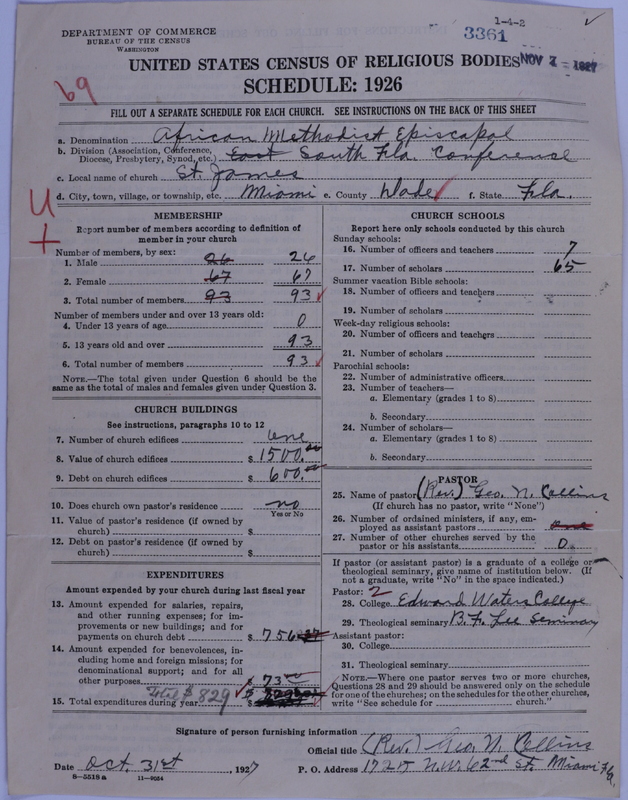 1-4-2
DEPARTMENT OF COMMERCE
BUREAU OF THE CENSUS
WASHINGTON
3361
NOV 2 - 1927
UNITED STATES CENSUS OF RELIGIOUS BODIES
SCHEDULE: 1926
69
FILL OUT A SEPARATE SCHEDULE FOR EACH CHURCH. SEE INSTRUCTIONS ON THE BACK OF THIS SHEET
a. Denomination African Methodist Episcapal
b. Division (Association, Conference, Diocese, Presbytery, Synod, etc.) East South Fla. Conference
c. Local name of church St. James
d. City, town, village, or township, etc. Miami e. County Dade f. State Fla.
U
+
MEMBERSHIP
Report number of members according to definition of
member in your church
Number of members, by sex:
1. Male 26 26
2. Female 67 67
3. Total number of members 93 93
Number of members under and over 13 years old:
4. Under 13 years of age 0
5. 13 years old and over 93
6. Total number of members 93
NOTE.—The total given under Question 6 should be the
same as the total of males and females given under Question 3.
CHURCH BUILDINGS
See instructions, paragraphs 10 to 12
7. Number of church edifices one
8. Value of church edifices $ 1500.00
9. Debt on church edifices $ 600.00
10. Does church own pastor's residence no
Yes or No
11. Value of pastor's residence (if owned by
church) $
12. Debt on pastor's residence (if owned by
church) $
EXPENDITURES
Amount expended by your church during last fiscal year
13. Amount expended for salaries, repairs,
and other running expenses; for im-
provements or new buildings; and for
payments on church debt $ 756
14. Amount expended for benevolences, in-
cluding home and foreign missions; for
denominational support; and for all
other purposes $ 73.00
Total $829
15. Total expenditures during year $
CHURCH SCHOOLS
Report here only schools conducted by this church
Sunday schools:
16. Number of officers and teachers 7
17. Number of scholars 65
Summer vacation Bible schools:
18. Number of officers and teachers
19. Number of scholars
Week-day religious schools:
20. Number of officers and teachers
21. Number of scholars
Parochial schools:
22. Number of administrative officers
23. Number of teachers—
a. Elementary (grades 1 to 8)
b. Secondary
24. Number of scholars—
a. Elementary (grades 1 to 8)
b. Secondary
PASTOR
25. Name of pastor (Rev.) Geo. N. Collins
(If church has no pastor, write "None")
26. Number of ordained ministers, if any, em-
ployed as assistant pastors
27. Number of other churches served by the
pastor or his assistants 0
If pastor (or assistant pastor) is a graduate of a college or
theological seminary, give name of institution below. (If
not a graduate, write "No" in the space indicated.)
Pastor: 2
28. College Edward Waters College
29. Theological seminary B. F. Lee Seminary
Assistant pastor:
30. College
31. Theological seminary
NOTE.—Where one pastor serves two or more churches,
Questions 28 and 29 should be answered only on the schedule
for one of the churches; on the schedules for the other churches,
write "See schedule for church."
Signature of person furnishing information
Official title (Rev.) Geo. N. Collins
Date Oct. 31st, 1927 P. O. Address 1725 N.W. 62nd St. Miami Fla.
8-5518a 11-9054